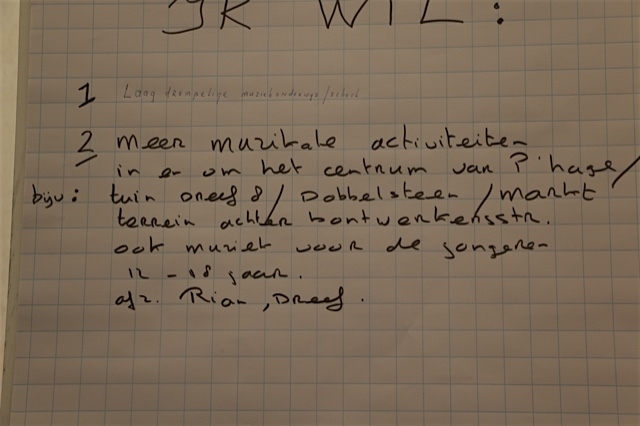 IK WIL:
1 Laag drempelige muziekonderwys/school
2 meer muzikale activiteiten
in en om het centrum van P'hage/
bijv: tuin Dreef 8/ Dobbelsteen/markt
terrein achter bontwerkersstr.
ook muziek voor de jongeren
12 - 18 jaar.
afz. Rian, Dreef.